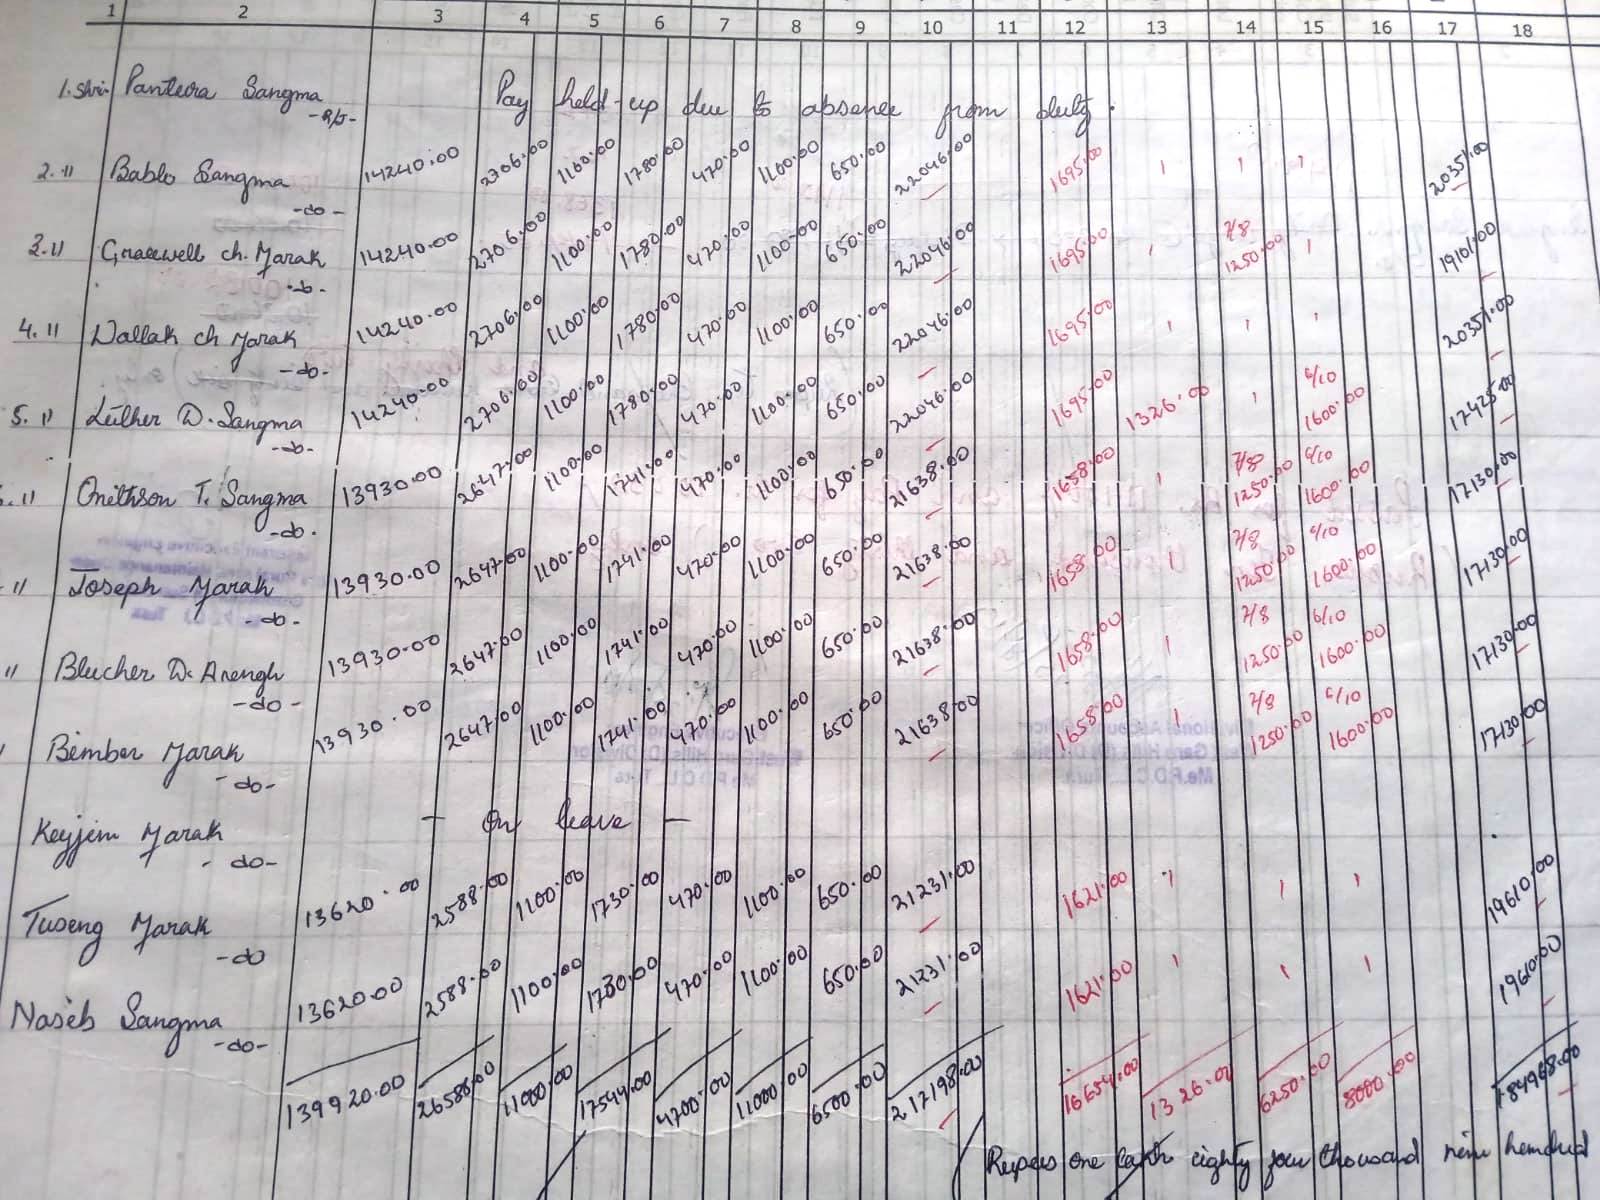 1 2 3 4 5 6 7 8 9 10 11 12 13 14 15 16 17 18
1. Shri Panteora Sangma Pay held-up due to absence from duty.
2. 11 Bablo Sangma 14240.00 2706.00 1100.00 1780.00 470.00 1100.00 650.00 22046.00 1695.00 20351.00
-do-
3. 11 Gracewell ch. Marak 14240.00 2706.00 1100.00 1780.00 470.00 1100.00 650.00 22046.00 1695.00 7/8 1250.00 19101.00
4. 11 Wallak ch Marak 14240.00 2706.00 1100.00 1780.00 470.00 1100.00 650.00 22046.00 1695.00 20351.00
-do-
5. 11 Luther D. Sangma 14240.00 2706.00 1100.00 1780.00 470.00 1100.00 650.00 22046.00 1695.00 1326.00 6/10 1600.00 17425.00
11 Onithson T. Sangma 13930.00 2647.00 1100.00 1741.00 470.00 1100.00 650.00 21638.00 1658.00 1250.00 6/10 1600.00 17130.00
-do-
11 Joseph Marak 13930.00 2647.00 1100.00 1741.00 470.00 1100.00 650.00 21638.00 1658.00 7/8 1250.00 6/10 1600.00 17130.00
-do-
11 Blucher D. Arengh 13930.00 2647.00 1100.00 1741.00 470.00 1100.00 650.00 21638.00 1658.00 7/8 1250.00 6/10 1600.00 17130.00
-do-
Bember Marak 13930.00 2647.00 1100.00 1741.00 470.00 1100.00 650.00 21638.00 1658.00 7/8 1250.00 6/10 1600.00 17130.00
-do-
Keyjem Marak - On leave -
-do-
Tuseng Marak 13620.00 2588.00 1100.00 1730.00 470.00 1100.00 650.00 21231.00 1621.00 19610.00
-do
Naseb Sangma 13620.00 2588.00 1100.00 1730.00 470.00 1100.00 650.00 21231.00 1621.00 19610.00
-do-
139920.00 26588.00 11000.00 17544.00 4700.00 11000.00 6500.00 217198.00 16654.00 1326.00 6250.00 8000.00 184968.00
Rupees one lakh eighty four thousand nine hundred